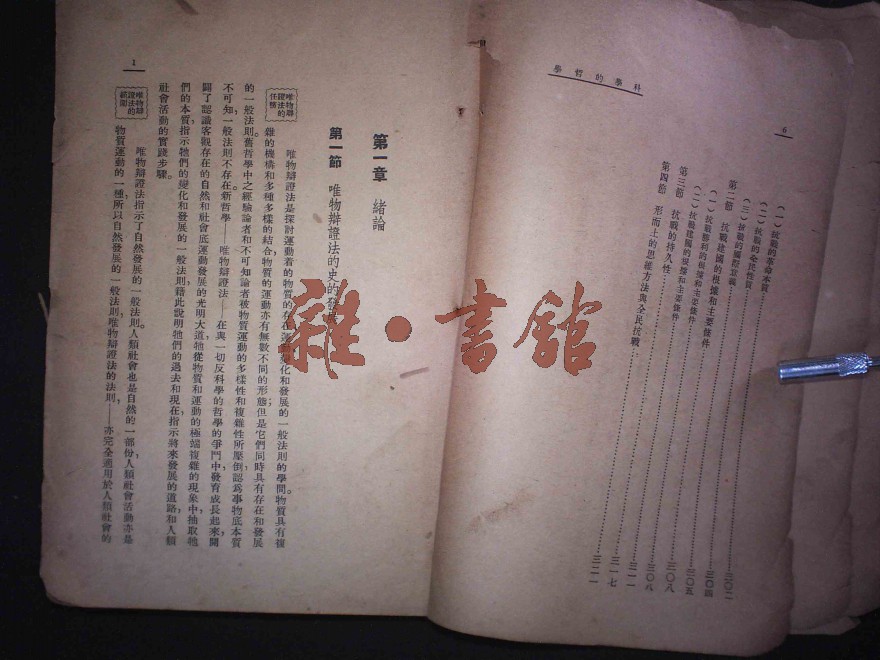 科學的哲學
6
(一)抗戰的革命本質……三〇二
(二)抗戰的全民性質……三〇四
(三)抗戰的國際意義……三〇五
第二節 抗戰建國的根據和主要條件……三〇八
(一)抗戰勝利的根據和主要條件……三〇八
(二)抗戰建國的根據和主要條件……三一一
第三節 抗戰的持久性……三一七
第四節 形而上的思維方法與全民抗戰……三二一
第一章 緒論
第一節 唯物辯證法的史的發展
唯物辯證法的任務
唯物辯證法是探討運動着的物質的存在運動變化和發展的一般法則的學問。物質具有複
雜的機構和多種多樣的結合,物質的運動亦有無數不同的形態;但是它們同時具有存在和發展
的一般法則。舊哲學中之經驗論者和不可知論者被物質運動的多樣性和複雜性所壓倒,認爲事物底本質
不可知,一般法則不存在。新哲學——唯物辯證法——在與一切反科學的哲學的爭鬥中發育成長起來,開
闢了認識客觀存在的自然和社會底運動發展的光明大道,牠從物質和運動的極端複雜的現象中,抽取牠
們的本質,指示牠們的變化和發展的一般法則,藉此說明牠們的過去和現在,指示將來發展的道路,和人類
社會活動的實踐步驟。
唯物辯證法的
唯物辯證法指示了自然發展的一般法則。人類社會也是自然的一部份,人類社會活動亦是
物質運動的一種,所以自然發展的一般法則,唯物辯證法的法則,——亦完全適用於人類社會的
1
雜·書館